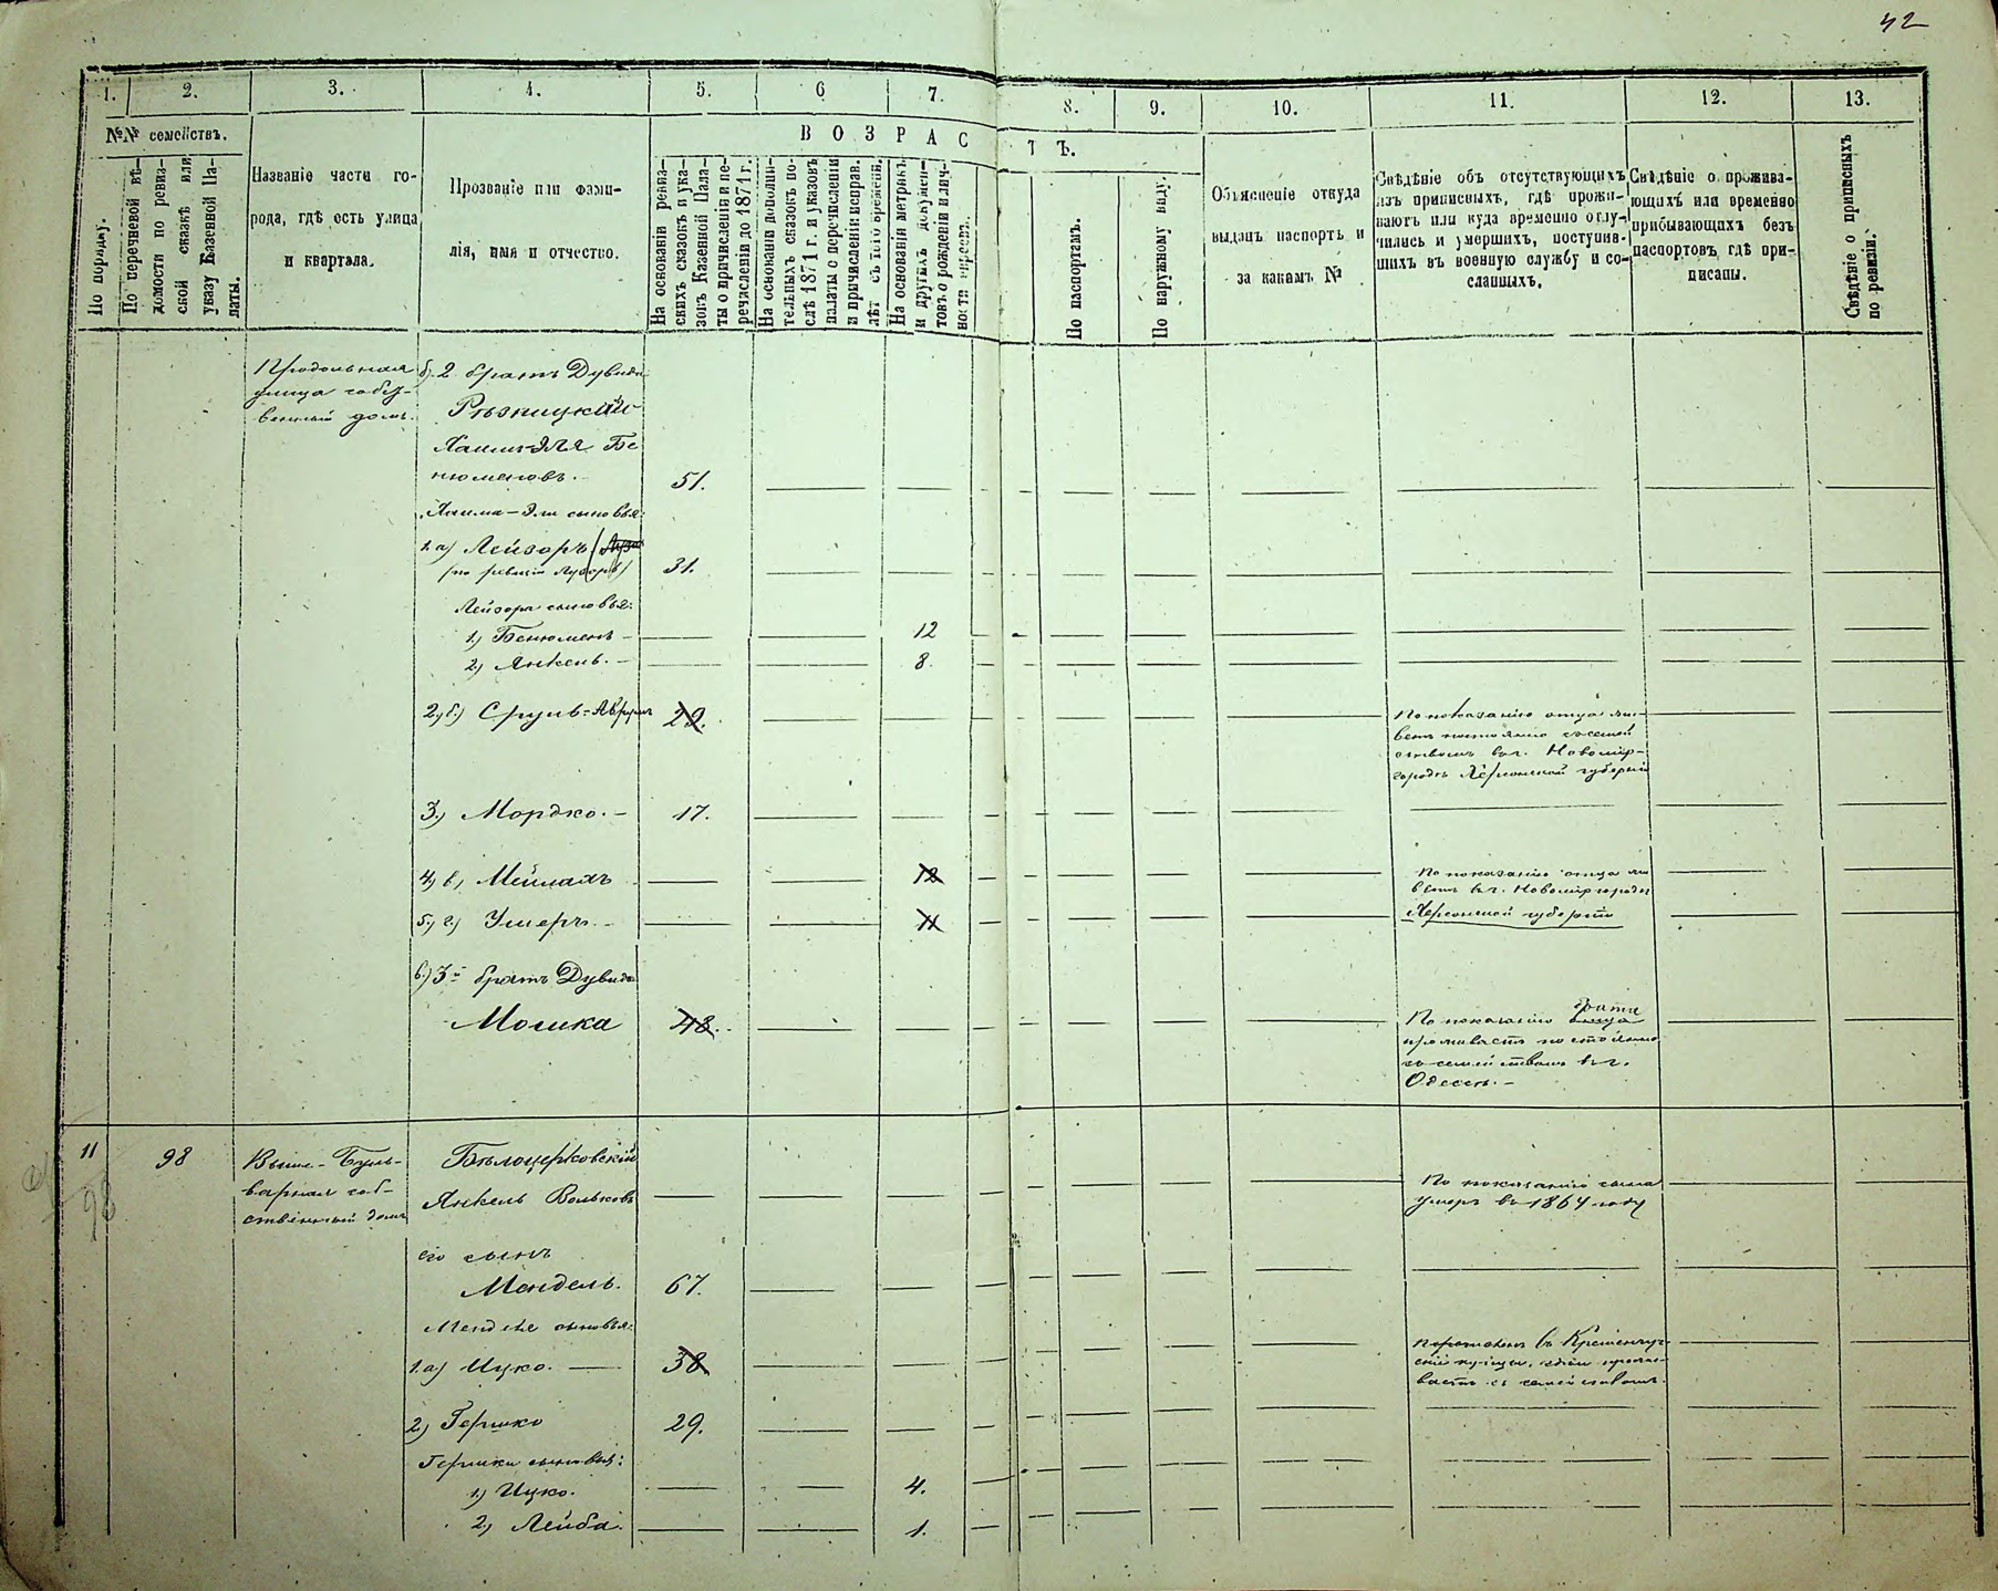 42
1. 2. 3. 4. 5. 6 7. 8. 9. 10. 11. 12. 13.
№№ семействъ.
В О З Р А С Т Ъ.
По порядку.
По перечневой вѣ-
домости по ревиз-
ской сказкѣ или
указу Казенной Па-
латы.
Названіе части го-
рода, гдѣ есть улица
и квартала.
Прозваніе или фами-
лія, имя и отчество.
На основаніи ревиз-
скихъ сказокъ и ука-
зовъ Казенной Пала-
ты о причисленіи и пе-
речисленіи до 1871 г.
На основаніи дополни-
тельныхъ сказокъ по-
слѣ 1871 г. и указовъ
палаты о перечисленіи
и причисленіи исправ.
лѣт съ того времени.
На основаніи метрикъ
и другихъ докумен-
товъ о рожденіи и лич-
ности евреевъ.
По паспортамъ.
По наружному виду.
Объясненіе откуда
выданъ паспортъ и
за какимъ №
Свѣдѣніе объ отсутствующихъ
изъ приписныхъ, гдѣ прожи-
ваютъ или куда временно отлу-
чились и умершихъ, поступив-
шихъ въ военную службу и со-
сланныхъ.
Свѣдѣніе о прожива-
ющихъ или временно
прибывающихъ безъ
паспортовъ, гдѣ при-
писаны.
Свѣдѣніе о приписныхъ
по ревизіи.
Продольная
улица собст-
венный домъ.
б). 2 братъ Дувида
Рѣзницкій
Хаимъ-Эля Бе
нюменовъ. 51.
Хаима-Эли сыновья:
1. а) Лейзоръ
(по ревизіи Лузоръ) 31.
Лейзора сыновья:
1) Бенюменъ 12
2) Янкель. 8.
2) б.) Сруль-Аврумъ 29.
По показанію отца жи-
ветъ постоянно съ семей
ствомъ въ г. Новомир-
городѣ Херсонской губерніи
3.) Мордко. 17.
4) в) Мейлахъ 12
По показанію отца жи
ветъ въ г. Новомиргородѣ
Херсонской губерніи
5.) г) Умеръ. 11
в.) 3й братъ Дувида
Мошка 48.
По показанію отца брата
проживаетъ постоянно
съ семействомъ въ г.
Одессѣ.
11 98
98
Выше-Буль-
варная соб-
ственный домъ
Бѣлоцерковскій
Янкель Вольковъ
По показанію сына
умеръ въ 1864 году
его сынъ
Мендель. 67.
Менделя сыновья:
1. а) Ицко. 38
въ Кременчуг-
скіе купцы,
съ семействомъ.
2) Гершко 29.
Гершки сыновья:
1.) Ицко. 4.
2) Лейба. 1.